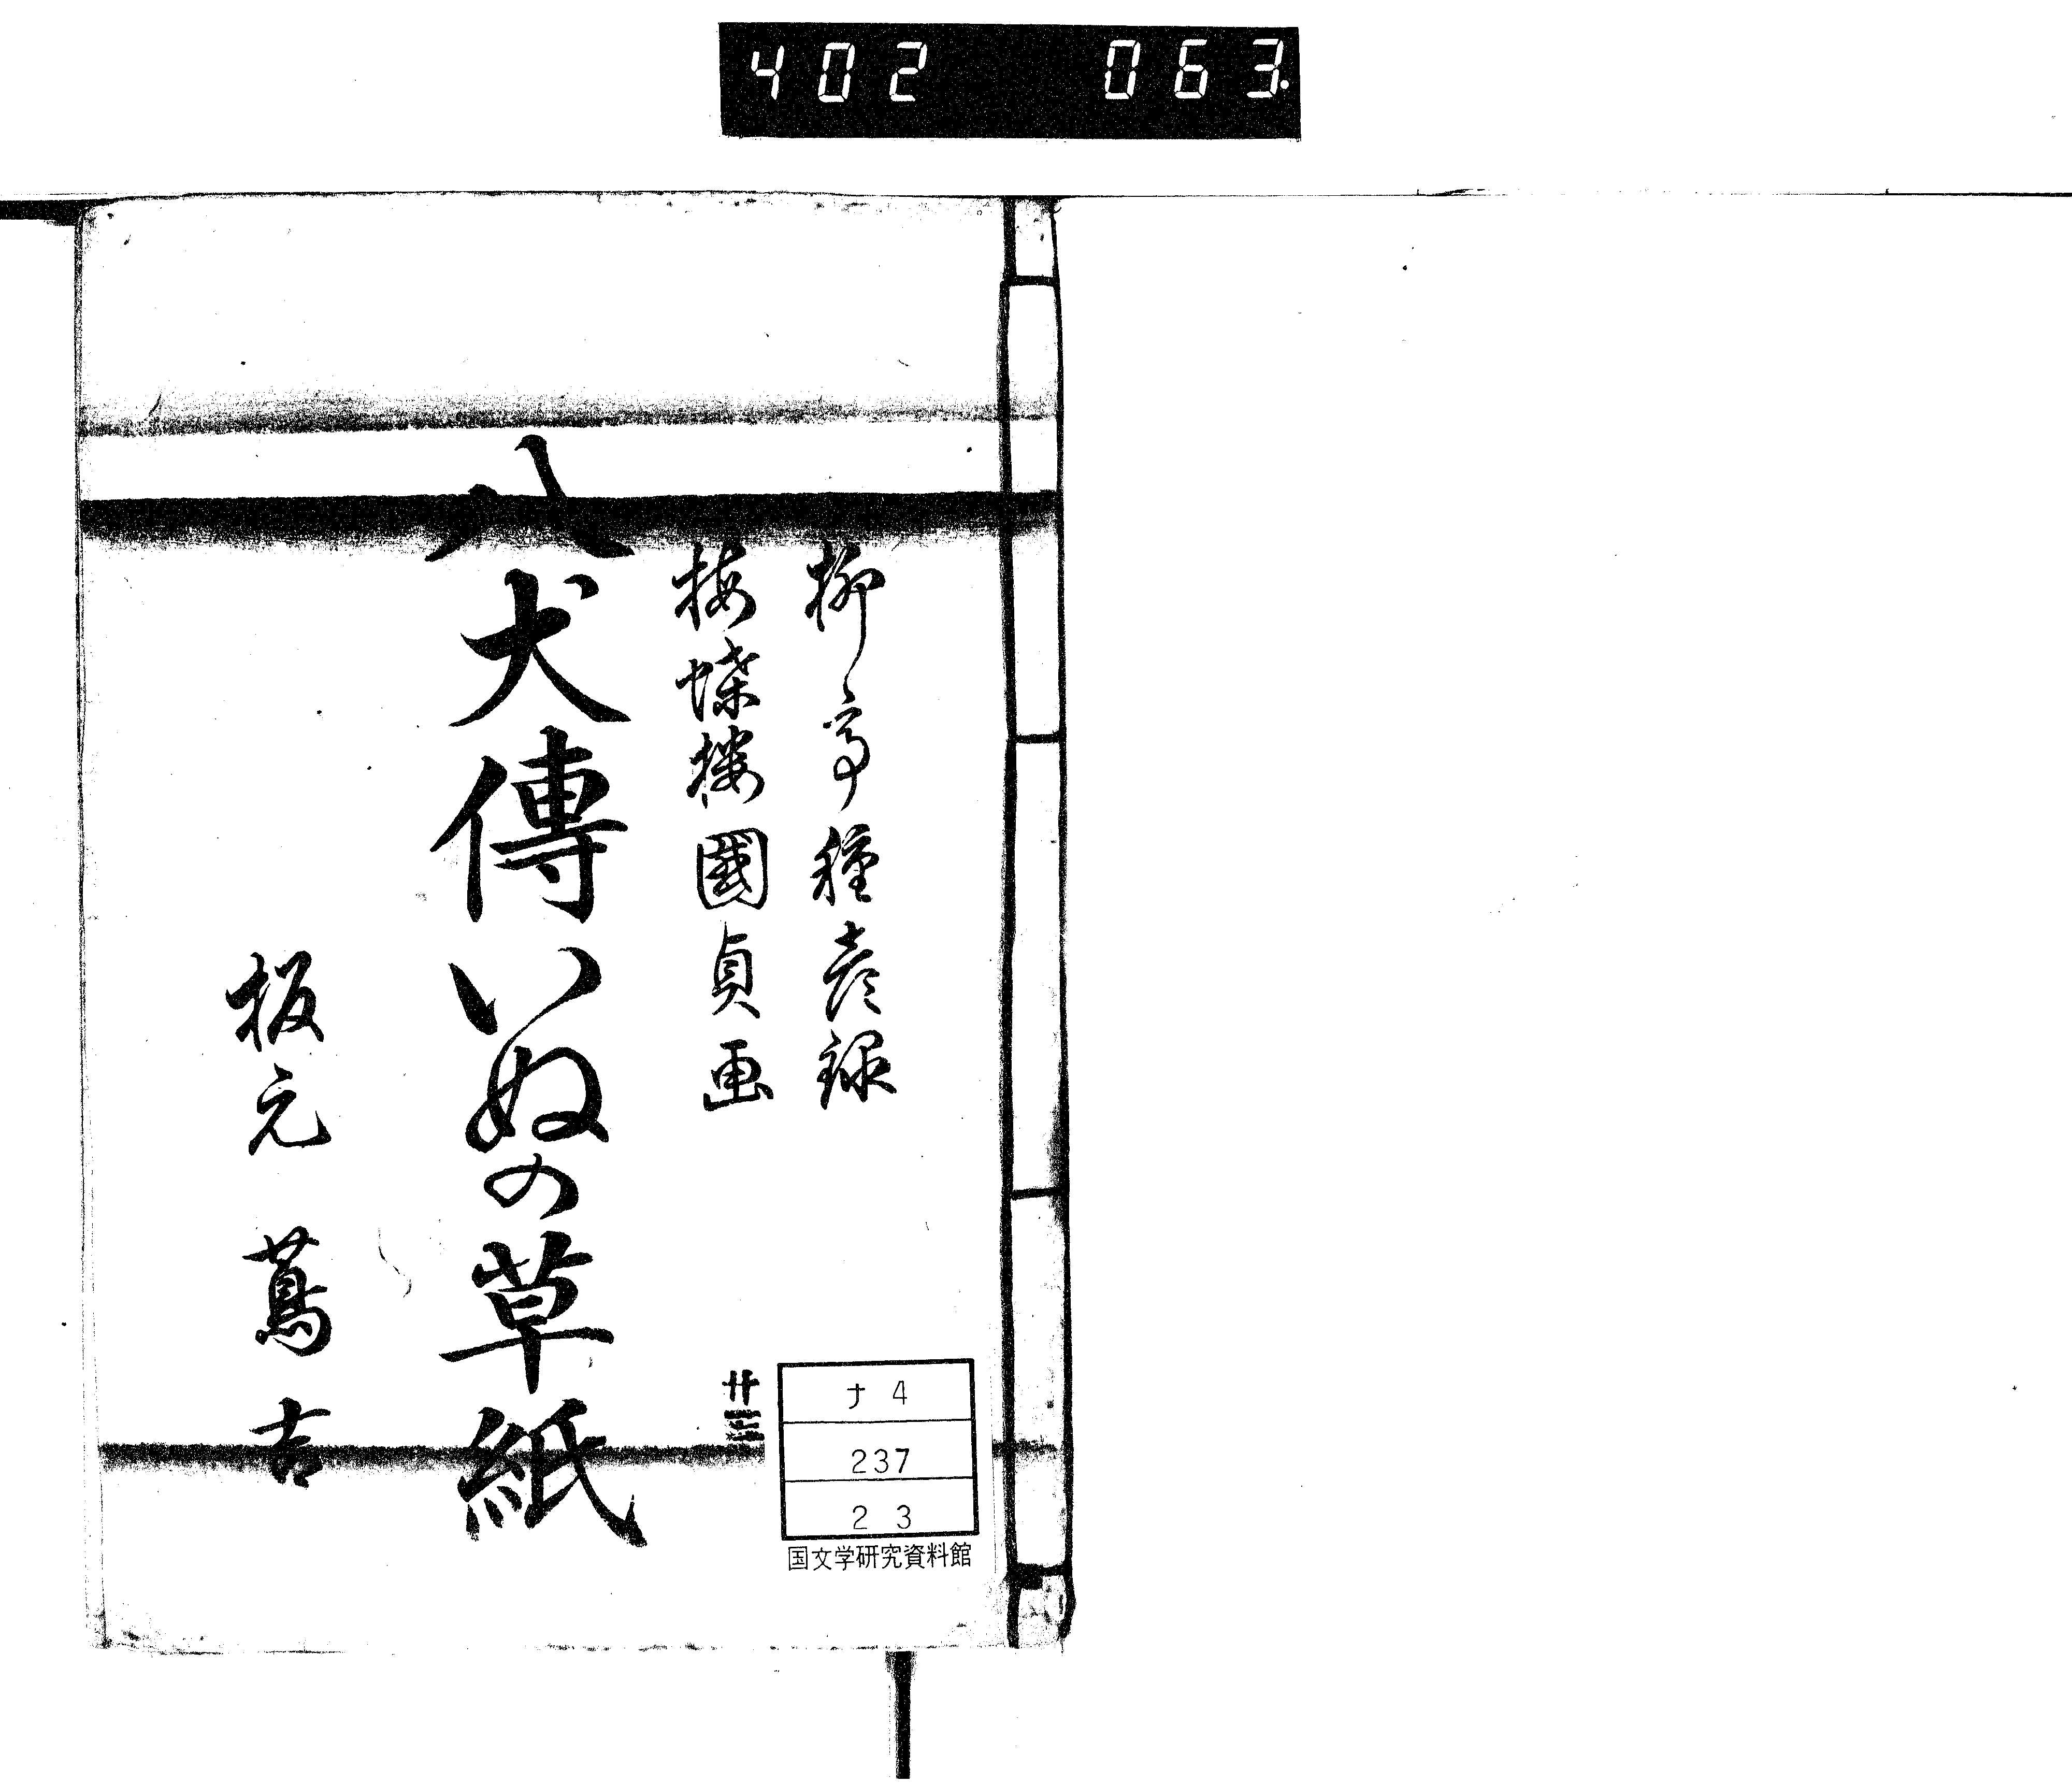 402 063.
柳亭種彦録
梅蝶樓國貞画
八犬傳いぬの草紙
板元 蔦吉
廿三
ナ4
237
23
国文学研究資料館